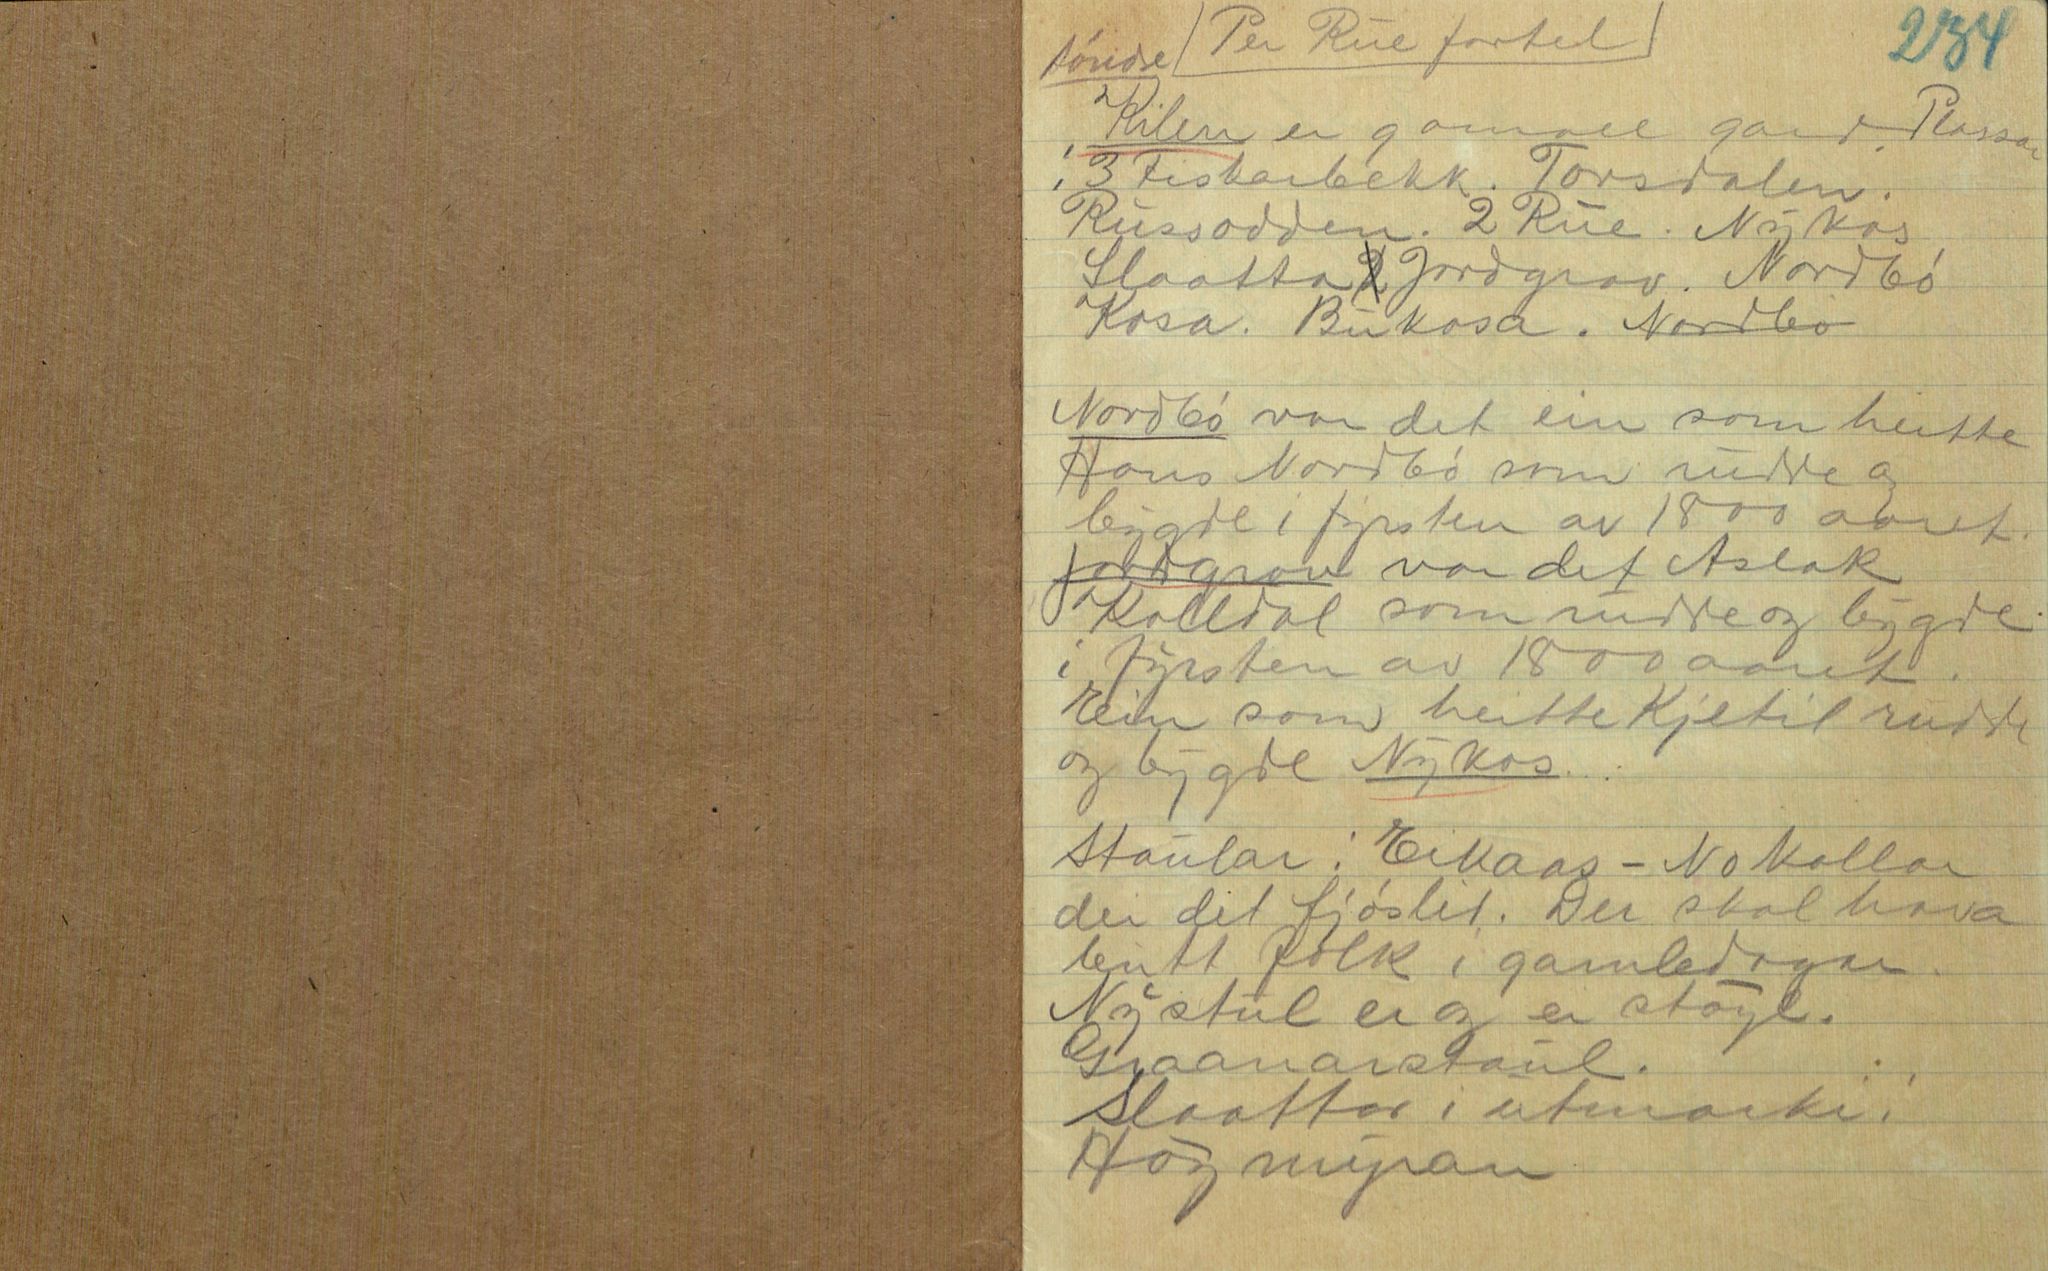 234
Per Rue fortel
Kilen er gamall gard. Plassar
i 3 Fiskarbekk. Torsdalen.
Russodden. 2 Rue. Nykos
Slaatta Jordgrav. Nordbó
Kosa. Bukosa. Nordbó
Nordbó var det ein som heitte
Hans Nordbó som rudde og
bygde i fyrsten av 1800 aaret.
Jordgrav var det Aslak
Kolldal som rudde og bygde
i fyrsten av 1800 aaret.
Ein som heitte Kjetil rudde
og bygde Nykos.
Staular: Eikaas - No kallar
dei det fjóslid. Der skal hava
butt folk i gamledagar.
Nystul er og er stóyl.
Graanarstaul.
Slaattar i utmarki:
Hógmyran